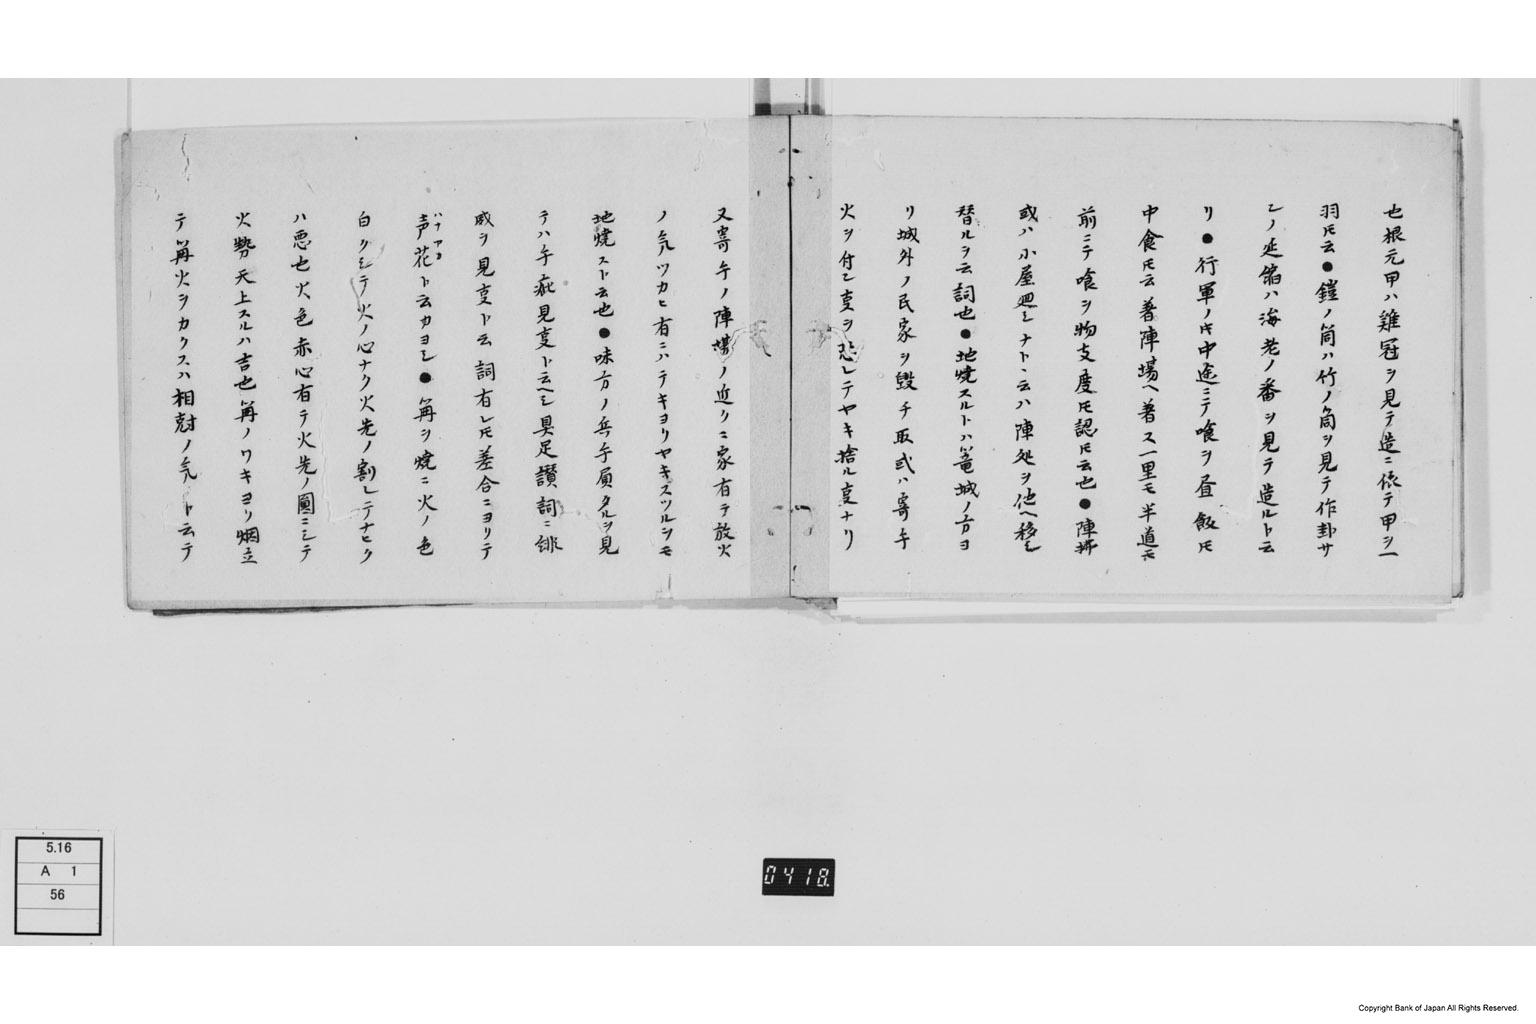 也根元甲ハ雞冠ヲ見テ造ニ依テ甲ヲ一
羽ㇳモ云●鎧ノ筒ハ竹ノ筒ヲ見テ作卦サ
シノ延鎧ハ海老ノ番ヲ見テ造ルト云
リ●行軍ノ𪜈中途ニテ喰ヲ昼飯𪜈
中食𪜈云著陣場ヘ著ス一里モ半道モ
前ニテ喰ヲ物支度𪜈認𪜈云也●陣拂
或ハ小屋廻シナト丶云ハ陣処ヲ他ヘ移シ
替ルヲ云詞也●地焼スルトハ篭城ノ方ヨ
リ城外ノ民家ヲ毀チ取或ハ寄手
火ヲ付ㇽ叓ヲ恐レテヤキ捨ル叓ナリ
又寄手ノ陣場ノ近クニ家有テ放火
ノ気ツカヒ有ニハテキヨリヤキスツルヲモ
地焼スト云也●味方ノ兵手屓タルヲ見
テハ手疵見叓ト云ヘシ具足讃詞ニ緋
威ヲ見叓ト云詞有レ𪜈差合ニヨリテ
声花ト云カヨシ●篝ヲ焼ニ火ノ色
ハナアカ
白クシテ火ノ心ナク火先ノ割レテナヒク
ハ悪也火色赤心有テ火先ノ圓ニシテ
火勢天上スルハ吉也篝ノワキヨリ烟立
テ篝火ヲカクスハ相尅ノ気ト云テ
5.16
A 1
56
0418
Copyright Bank of Japan All Rights Reserved.